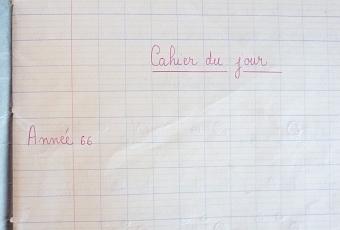 Cahier du jour
Année 66